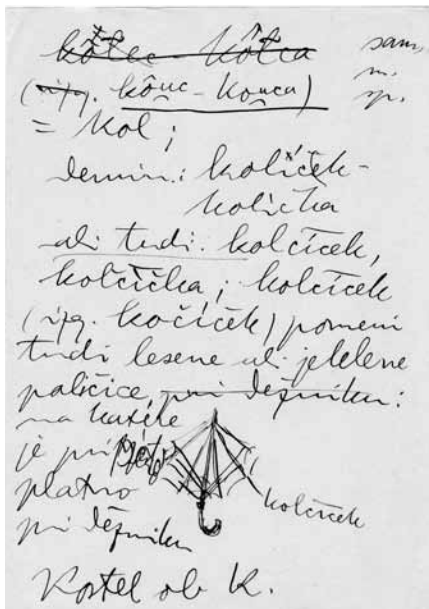 kôlec - kôlca sam.
(izg. kôuc - kouca) m.
= kol; sp.
demin.: količek -
količka
ali tudi: kolčiček,
kolčička; kolčiček
(izg. kočiček) pomeni
tudi lesene ali jeklene
paličice, pri dežniku:
na katere
je pripeto
platno
pri dežniku
kolčiček
Kostel ob K.